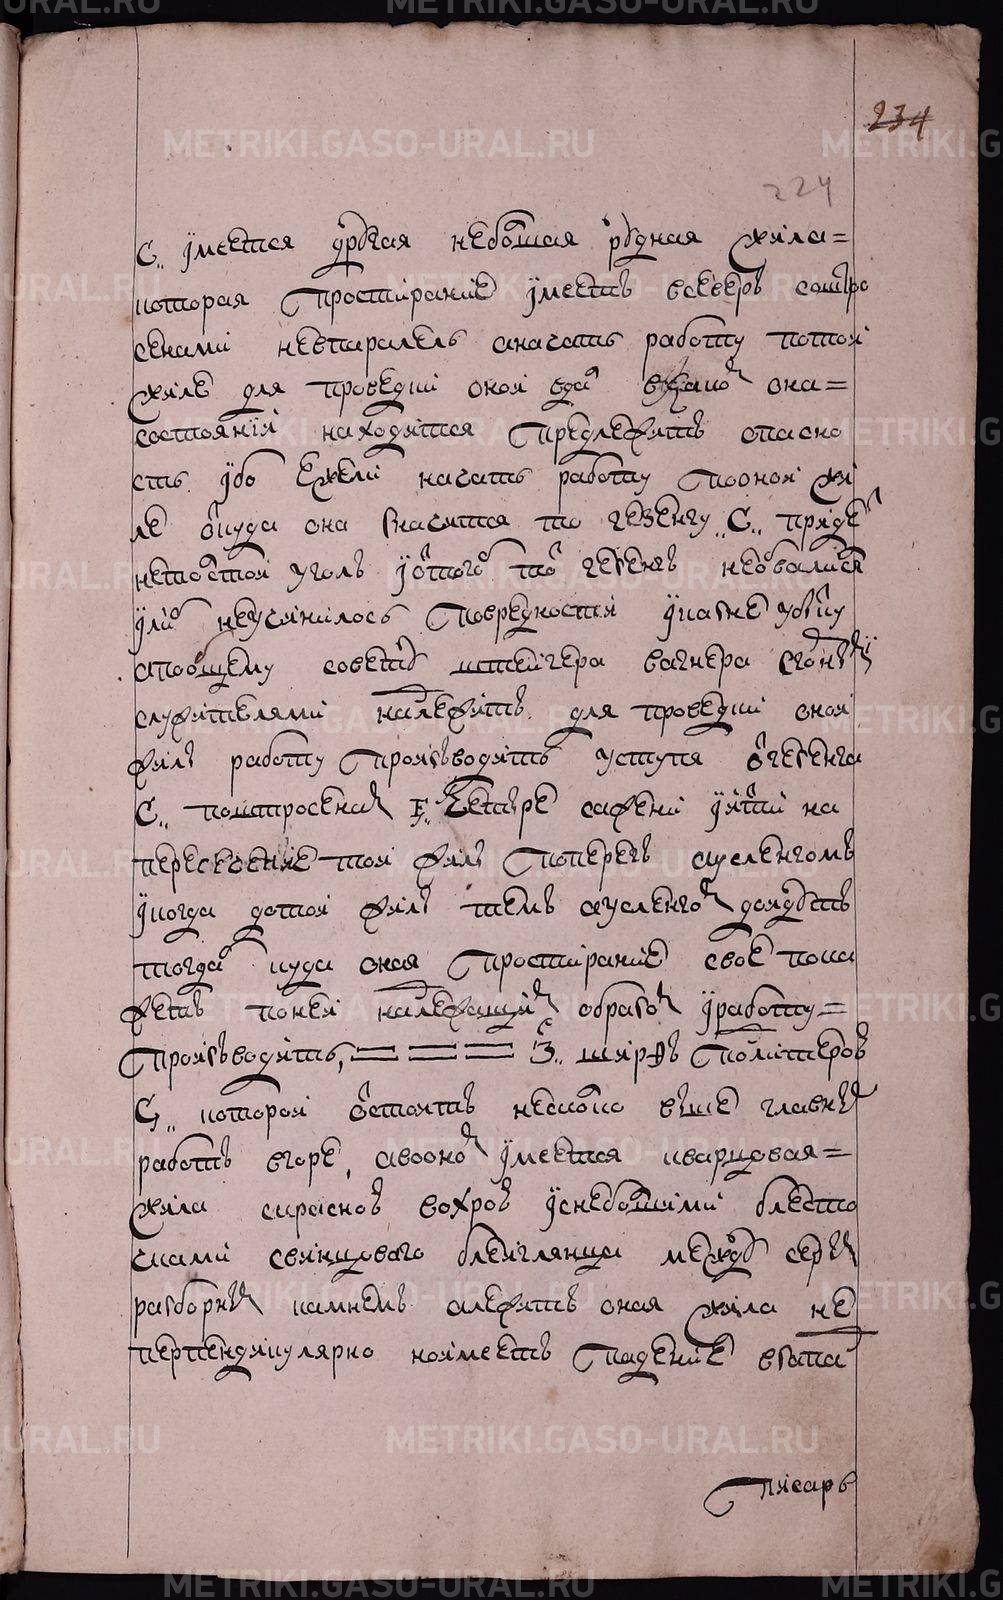 234
224
С,, имеется другая небольшая рудная жила=
которая простирание имеетъ всеверъ сошtро
сенами невпаралель аначать работу потой
жиле для проведки оной вда вкакомъ она=
состоянии находится предлежитъ опасно
сть ибо ежели начать работу поонои жи
ле откуда она значится то гезенгу ,,С,, придетъ
непостой уголь
или неучинилось повредности
апообщему совету штейгера вагнера сгорными
служительми належитъ для проведки оной
жилы работу производить уступя отгезенга
С,, поштросеники Е,, четыре сажени иитти на
пересечение той жилы поперегъ кусленгомъ
икогда дотой жилы темъ кусленгомъ дойдутъ
тогда куда оная простирание свое пока
жетъ понеи належащимъ образомъ иработу=
производить, З,, ширфъ политеровъ
С,, которой отстоитъ несколко выше главныхъ
работъ вгоре, авоономъ имеется кварцовая=
жила скрасною вохрою иснебольшими блестo
чками свинцоваго блейглянца между серымъ
разборнымъ камнемъ алежитъ оная жила не
перпендикулярно ноимеетъ падение взапа
Писарь